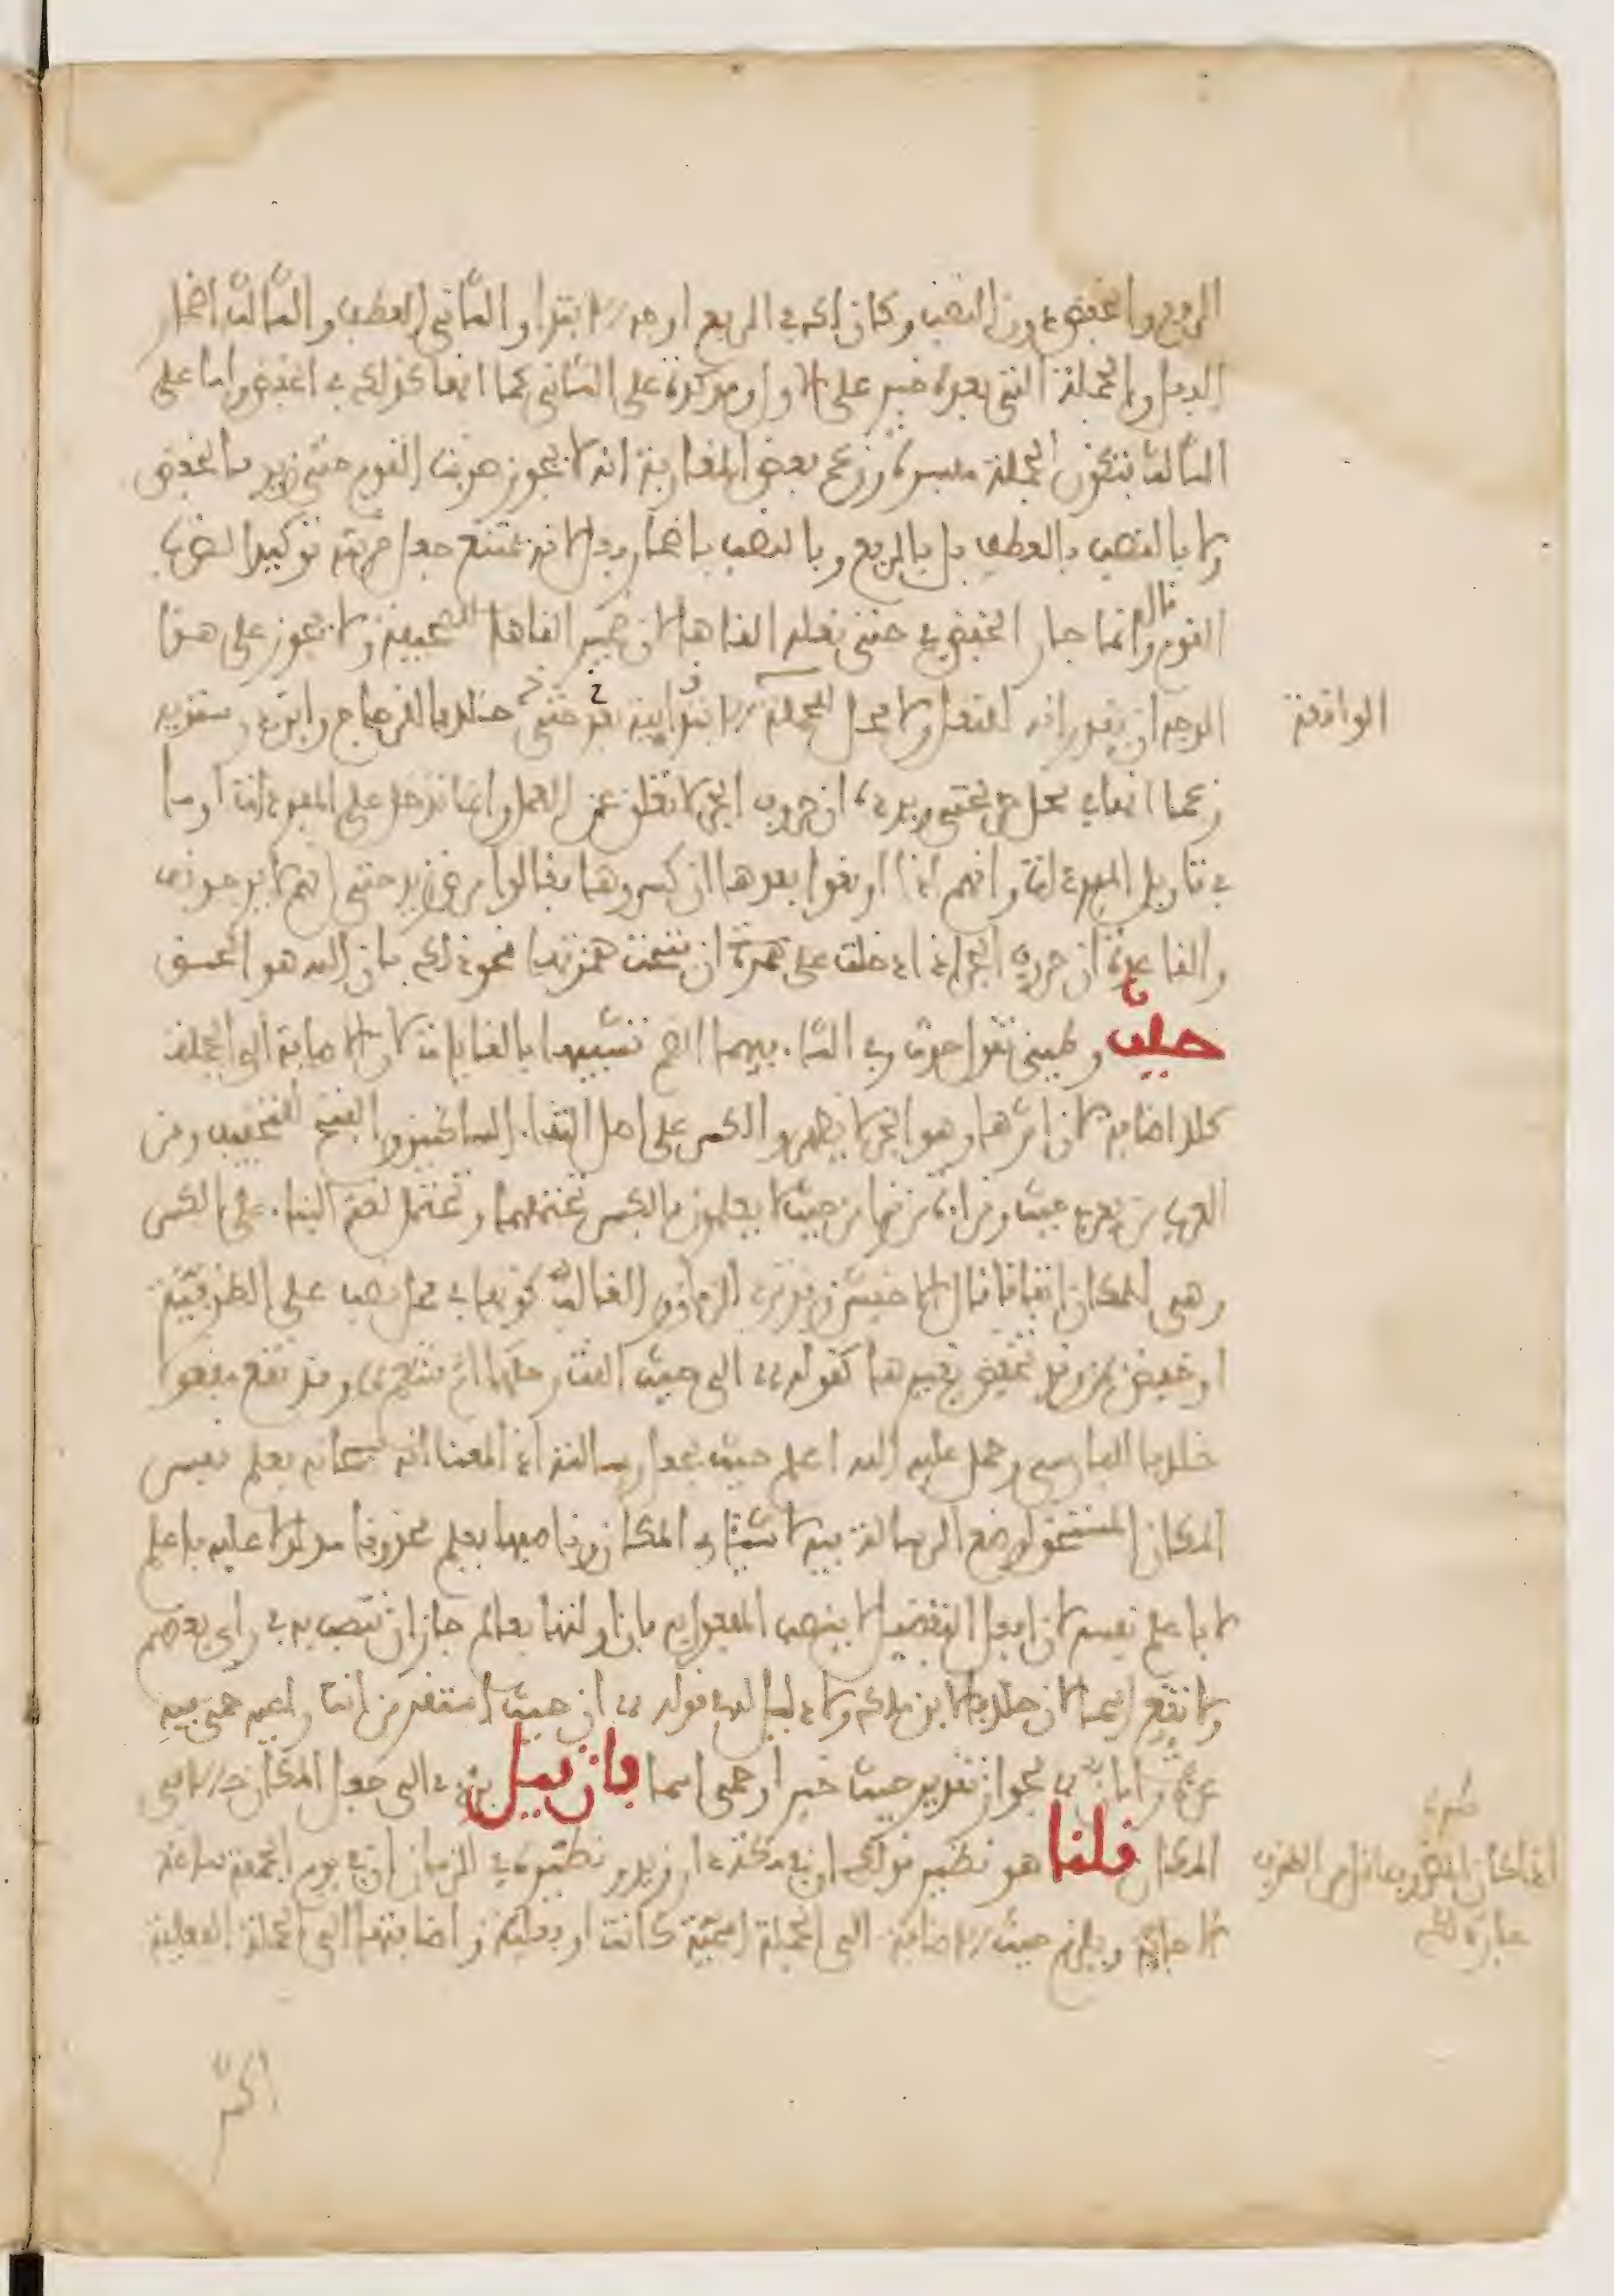 الرفع والخفض دون النصب وكان لك في الرفع اوجه الابتدا والثاني العطف والثالث اضمار
الفعل والجملة التي بعده خبر على الاول ومؤكدة على الثاني كما انها كذلك في الخفض واما على
الثالث فتكون الجملة مفسرة وزعم بعض المغاربة انه لا يجوز ضربت القوم حتى زيد بالخفض
ولا بالنصب بالعطف بل بالرفع وبالنصب باضمار فعل لانه يمتنع جعل ضربته توكيدا لضربت
القوم قال وانما جاز الخفض في حتى نعله القاها لان ضمير القاها للصحيفة ولا يجوز على هذا
الوجه ان يقدر انه للنعل ولا محل للجملة الابتدائية بعد حتى خلافا للزجاج وابن درستويه
الواقعة
زعما انها في محل جر بحتى ويرده ان حروف الجر لا تعلق عن العمل وانما تدخل على المفردات او ما
في تاويل المفردات وانهم اذا اوقعوا بعدها ان كسروها فقالوا مرض زيد حتى انهم لا يرجونه
والقاعدة ان حروف الجر اذا دخلت على همزة ان فتحت همزتها نحو ذلك بان الله هو الحق
حيث وطيئ تقول حوث وفي الثاء فيهما الضم تشبيها بالغايات لان الاضافة الى الجملة
كلا اضافة لان اثرها وهو الجر لا يظهر والكسر على اصل التقاء الساكنين والفتح للتخفيف ومن
العرب من يعرب حيث وقراءة من قرا من حيث لا يعلمون بالكسر تحتملها وتحتمل لغة البناء على الكسر
وهي للمكان اتفاقا قال الاخفش وقد ترد للزمان والغالب كونها في محل نصب على الظرفية
او خفض بمن وقد تخفض بغيرها كقوله الى حيث القت رحلها ام قشعم وقد تقع مفعولا
خلافا للفارسي وحمل عليه الله اعلم حيث يجعل رسالته اذ المعنا انه سبحانه يعلم نفس
المكان المستحق لوضع الرسالة فيه لا شيئا في المكان وناصبها يعلم محذوفا مدلولا عليه باعلم
لا باعلم نفسه لان افعل التفضيل لا ينصب المفعول به فان اولتها بعالم جاز ان تنصبه في راي بعضهم
ولا تقع اسما لان خلافا لابن ملك ولا دليل له في قوله ان حيث استقر من انت راعيه حمى فيه
عزة وامان لجواز تقدير حيث خبرا وحمى اسما فان قيل يؤدي الى جعل المكان حالا في
المكان قلنا هو نظير قولك ان في مكة دار زيد ونظيره في الزمان ان في يوم الجمعة ساعة
الاجابة ويلزم حيث الاضافة الى الجملة اسمية كانت او فعلية واضافتها الى الجملة الفعلية
اكثر